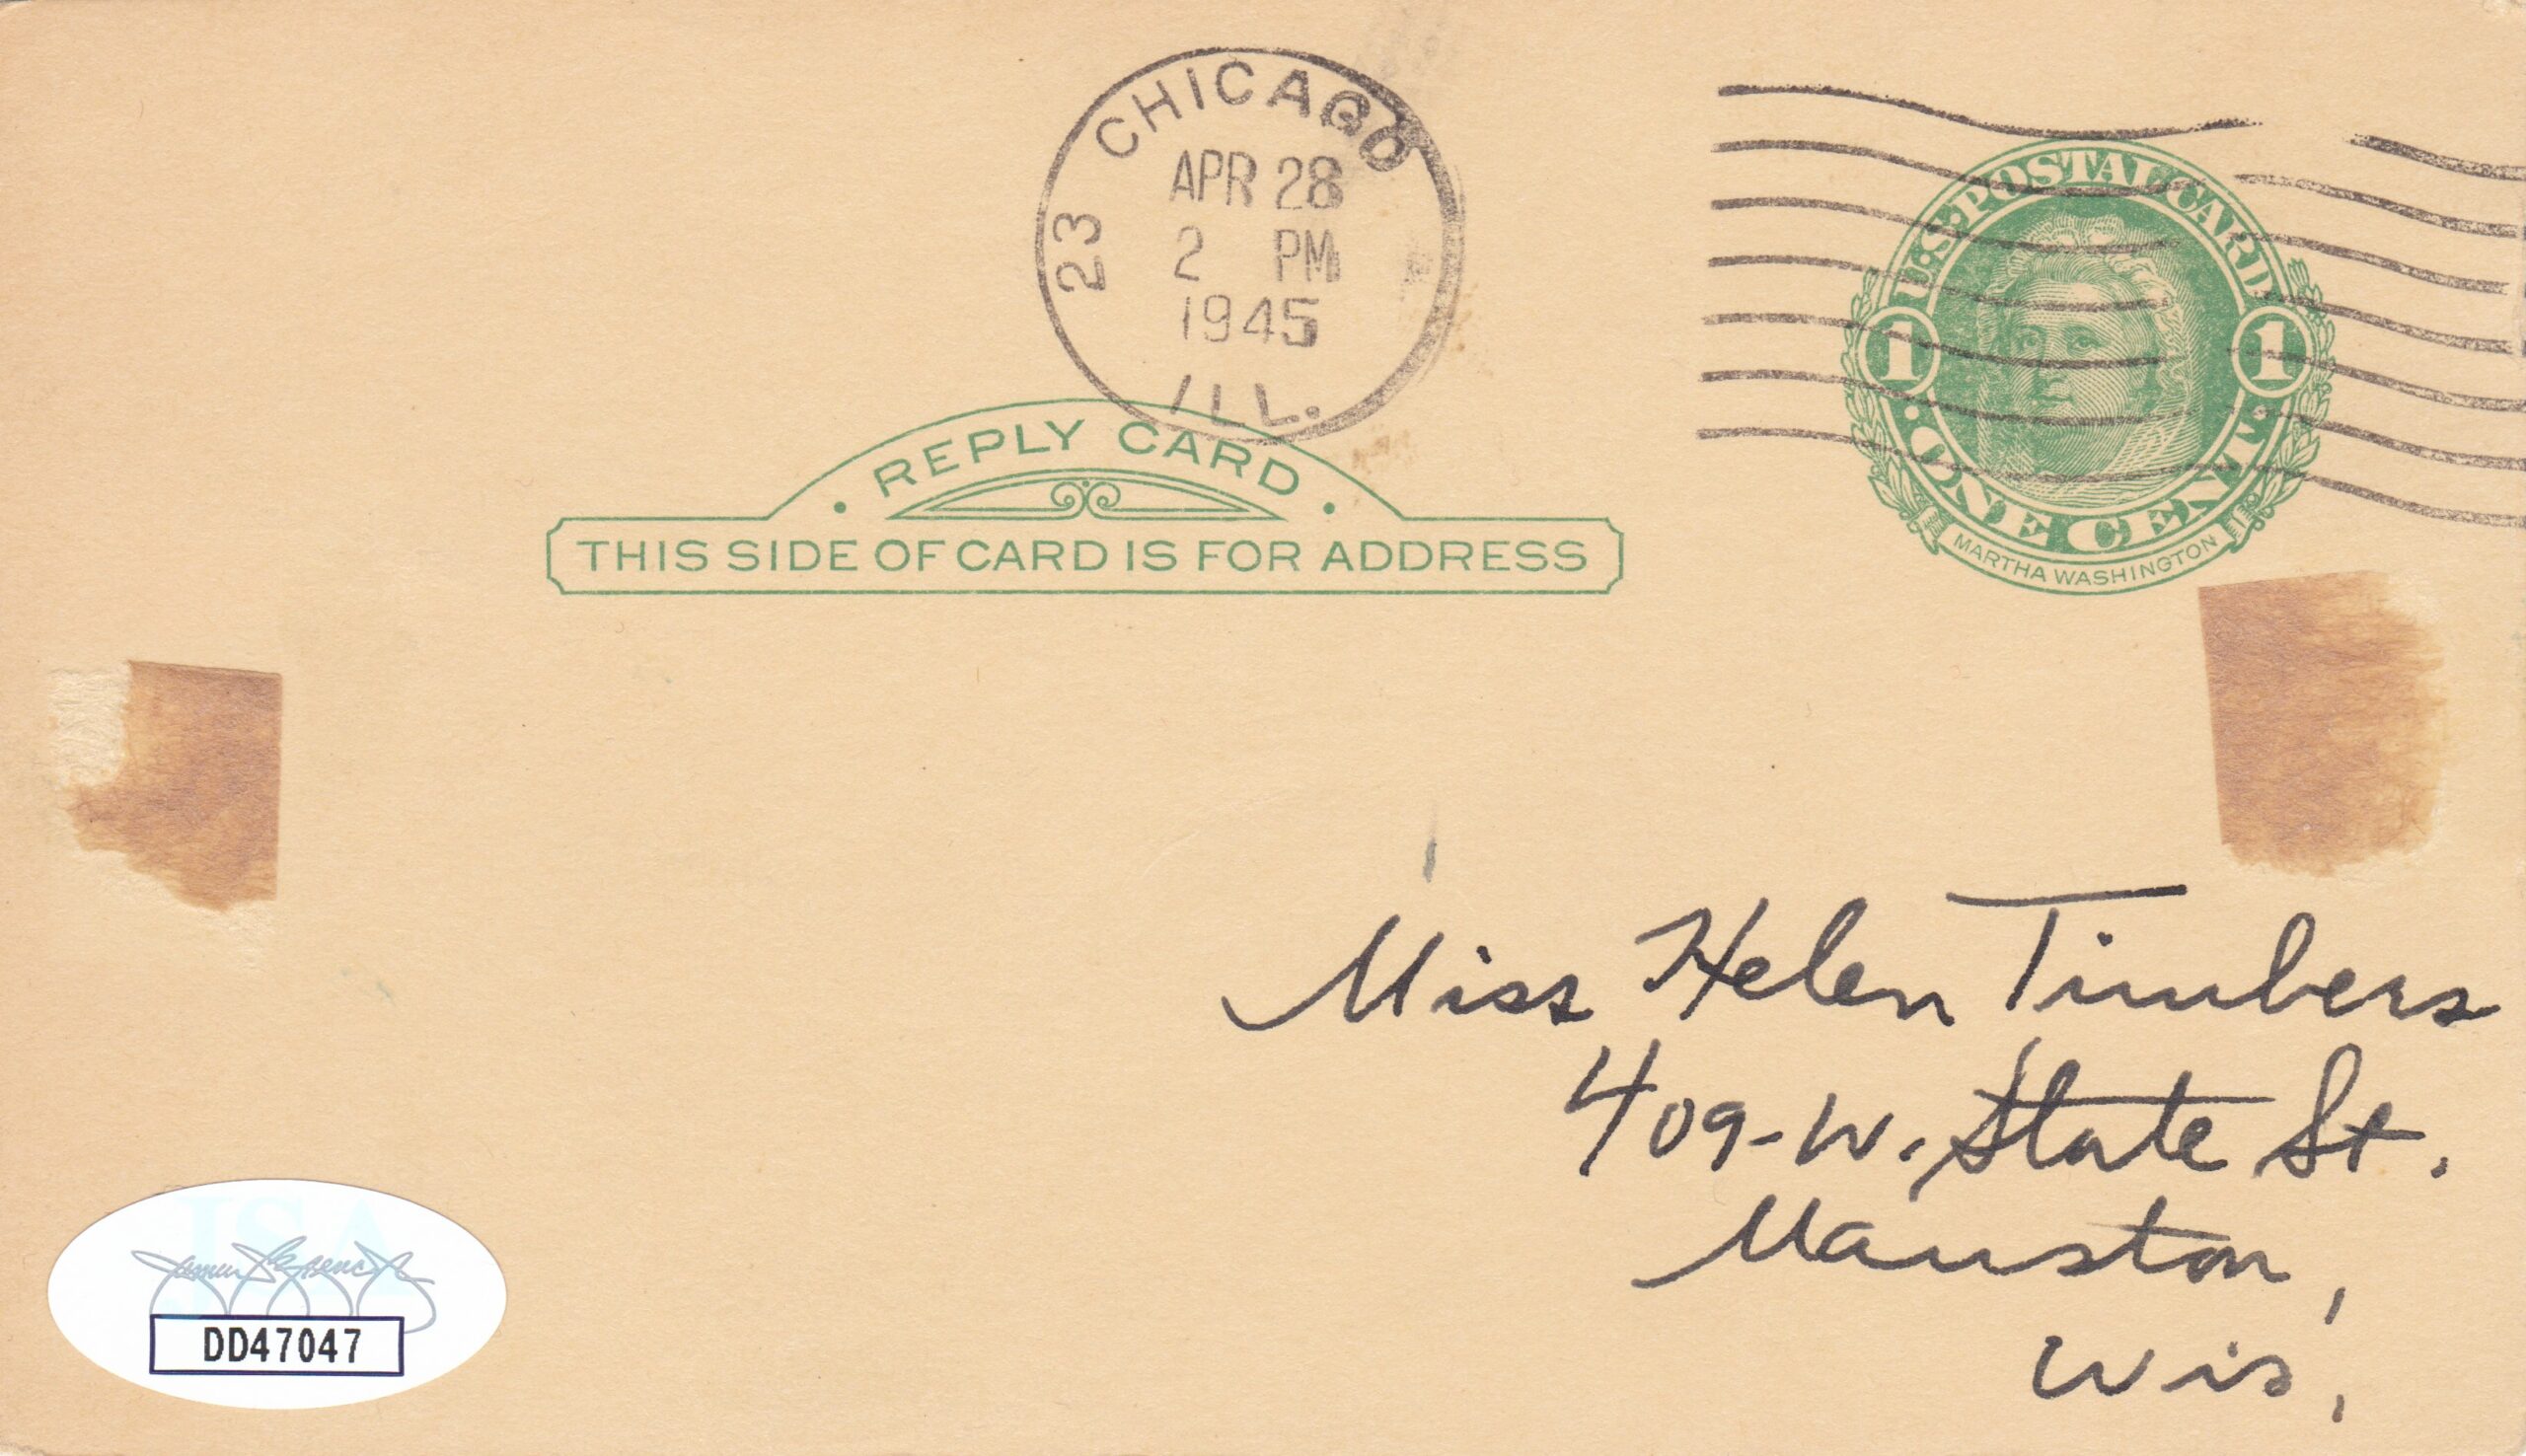 CHICAGO
23
APR 28
2 PM
1945
ILL.
U.S. POSTAL CARD
1 1
· ONE CENT ·
MARTHA WASHINGTON
· REPLY CARD ·
THIS SIDE OF CARD IS FOR ADDRESS
Miss Helen Timbers
409-W. State St.
Mauston,
Wis,
JSA
DD47047